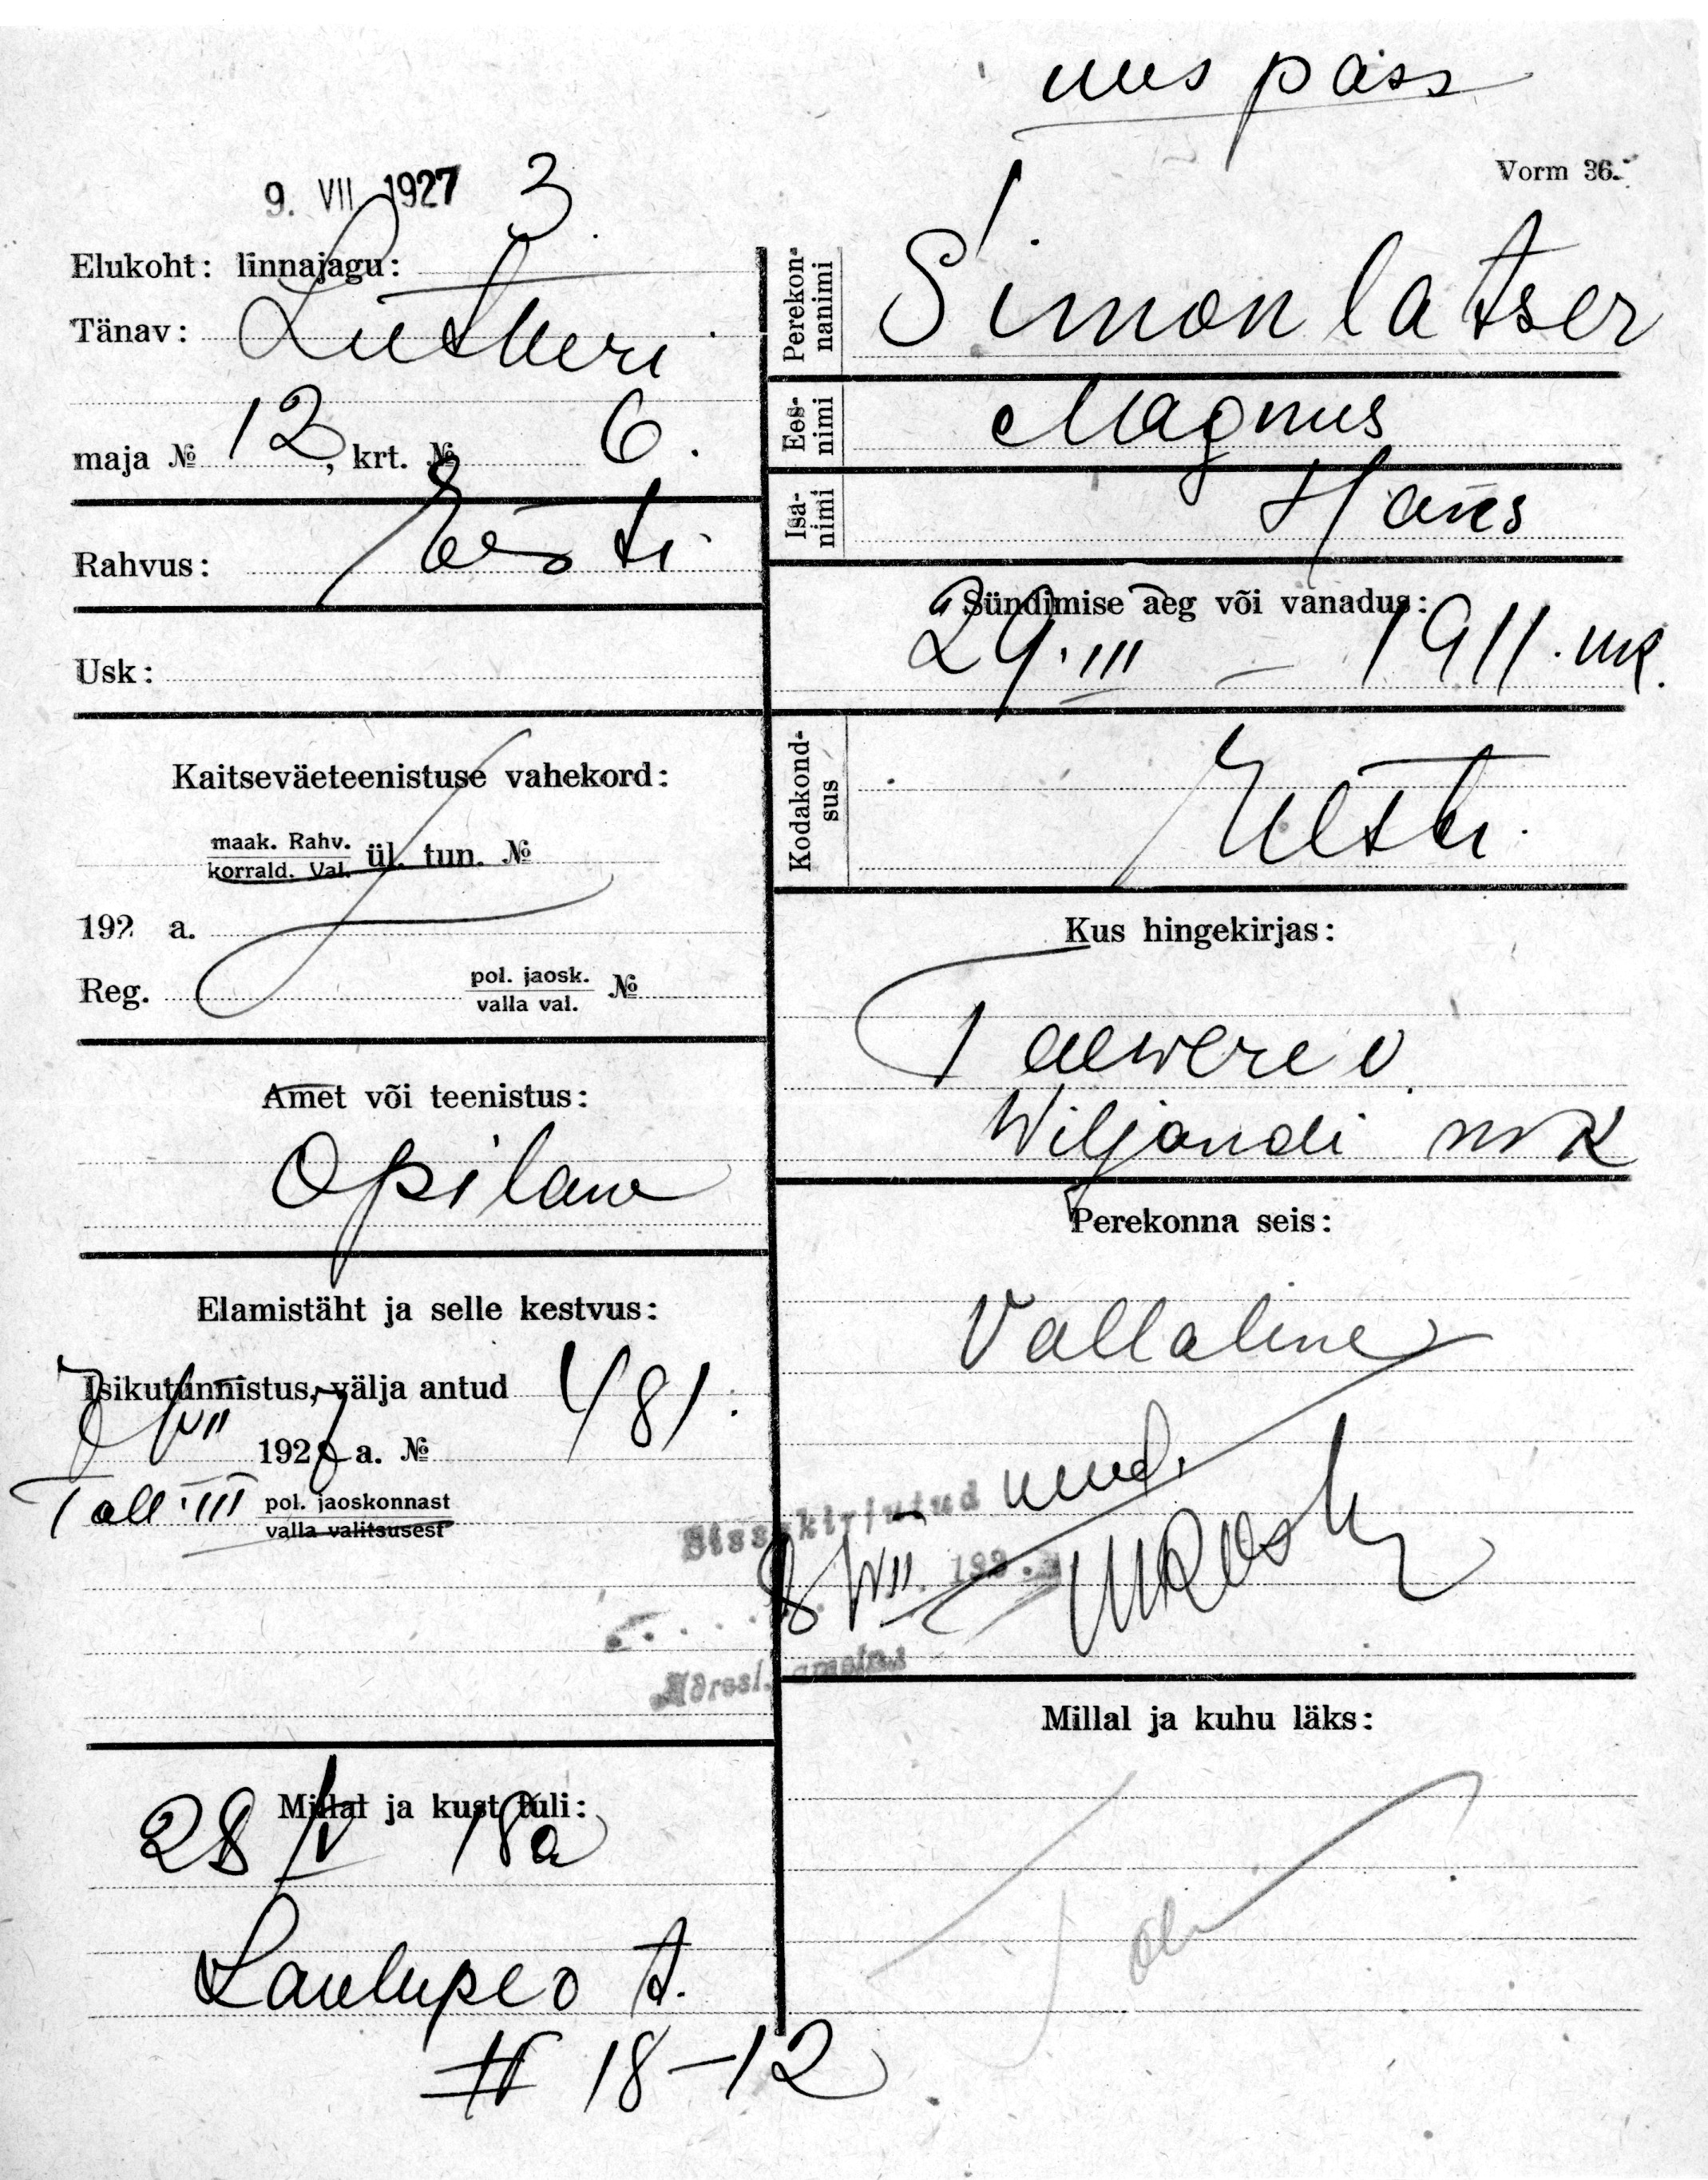 uus pass
Vorm 36.
9. VII 1927
Elukoht: linnajagu: 3.
Tänav: Lutheri
maja № 12, krt. № 6.
Rahvus: Eesti
Usk:
Kaitseväeteenistuse vahekord:
maak. Rahv.
korrald. Val. ül. tun. №
192 a.
Reg. pol. jaosk. №
valla val.
Amet või teenistus:
Opilane
Elamistäht ja selle kestvus:
Isikutunnistus, välja antud 481.
VII 1927 a. №
Tall. III pol. jaoskonnast
valla valitsusest
Millal ja kust tuli:
28 IV 18a
Laulupeo t.
N 18-12
Perekon-
nanimi Simonlatser
Ees-
nimi Magnus
Isa-
nimi Hans
Sündimise aeg või vanadus:
29. III - 1911. mk.
Kodakond-
sus Eesti.
Kus hingekirjas:
Taewere v.
Wiljandi mk
Perekonna seis:
Vallaline
Sissekirjutud
8 VII 192
Adressl.
Millal ja kuhu läks: